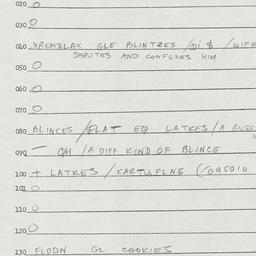 020 0
030 0
040 XREMZLAX GLE BLINTZES / DI $ / WIFE
DISPUTES AND CONFUSES HIM
050 0
060 0
070 0
080 BLINCES / FLAT EQ LATKES / A RUSS
090 — QH / A DIFF KIND OF BLINCE
100 + LATKES / KARTUFLNE (/095010
101 0
110 0
120 0
130 FLODN GL COOKIES